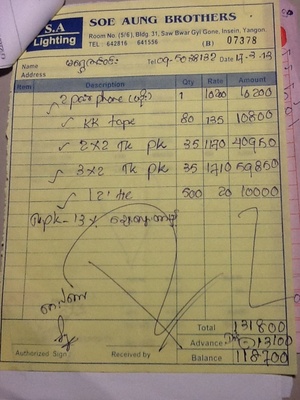 S.A
Lighting
SOE AUNG BROTHERS
Room No. (5/6), Bldg. 31, Saw Bwar Gyi Gone, Insein, Yangon.
TEL : 642816 641556 (B) 07378
Name
Tel 09-5038132 Date 17-3-13
Address
Item Description Qty Rate Amount
1 10200 10200
KK tape 80 135 10800
2x2 TK PK 35 1170 40950
3x2 TK PK 35 1710 59850
12" tie 500 20 10000
Total 131800
Advance 13100
Balance 118700
Authorized Sign. Received by